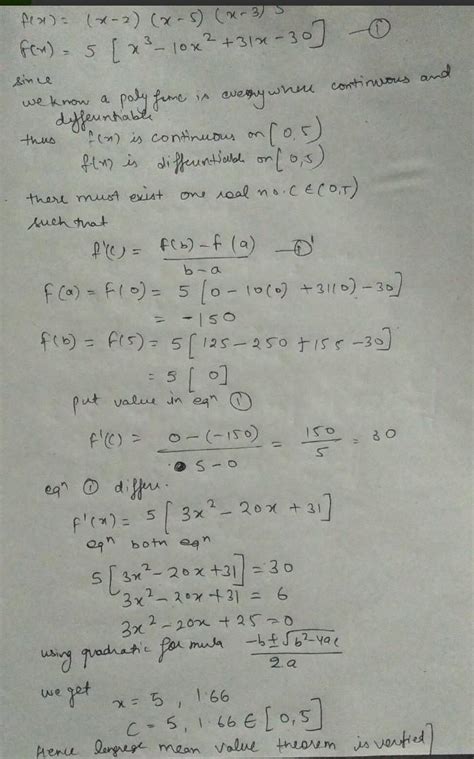 f(x) = (x-2) (x-5) (x-3) 5
f(x) = 5 [x³ - 10x² + 31x - 30] - ①
since
we know a poly func is everywhere continuous and
differentiable
thus f(x) is continuous on [0,5)
f(x) is differentiable on [0,5)
there must exist one real no. C ∈ (0,5)
such that
f'(c) = f(b) - f(a) / b-a - ①'
f(a) = f(0) = 5 [0 - 10(0) + 31(0) - 30]
= -150
f(b) = f(5) = 5 [125 - 250 + 155 - 30]
= 5 [0]
put value in eqn ①
f'(c) = 0-(-150) / 5-0 = 150/5 = 30
eqn ① differ.
f'(x) = 5 [3x² - 20x + 31]
eqn both eqn
5 [3x² - 20x + 31] = 30
3x² - 20x + 31 = 6
3x² - 20x + 25 = 0
using quadratic formula -b ± √b²-4ac / 2a
we get
x = 5, 1.66
C = 5, 1.66 ∈ [0,5]
Hence mean value theorem is verified]